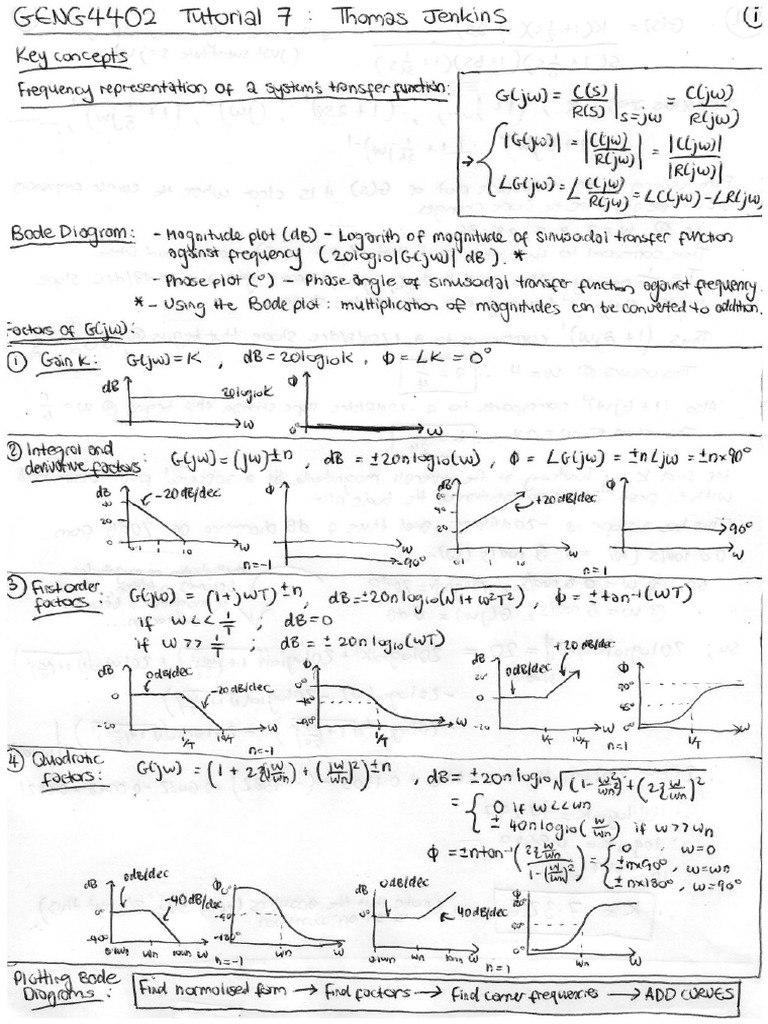 GENG4402 Tutorial 7 : Thomas Jenkins
(i)
Key concepts
Frequency representation of a system's transfer function:
G(jω) = C(s)/R(s) |s=jω = C(jω)/R(jω)
→ { |G(jω)| = |C(jω)/R(jω)| = |C(jω)|/|R(jω)|
∠G(jω) = ∠ C(jω)/R(jω) = ∠C(jω) - ∠R(jω)
Bode Diagram: - Magnitude plot (dB) - Logarith of magnitude of sinusoidal transfer function
against frequency (20log10|G(jω)| dB). *
- Phase plot (°) - Phase angle of sinusoidal transfer function against frequency.
* - Using the Bode plot: multiplication of magnitudes can be converted to addition.
Factors of G(jω):
① Gain K: G(jω)=K , dB=20log10K , Φ = ∠K = 0°
dB 20log10K ω Φ 0° ω
② Integral and
derivative factors : G(jω)=(jω)^±n , dB = ±20nlog10(ω) , Φ = ∠G(jω) = ±n∠jω = ±n×90°
dB 40 20 0 -20dB/dec 0.1 1 10 ω
Φ n=-1 -90° ω
dB 40 20 0 +20dB/dec 0.1 1 10 ω
Φ 90° n=1 ω
③ First order
factors : G(jω) = (1+jωT)^±n , dB=±20nlog10(√1+ω²T²) , Φ = ±tan⁻¹(ωT)
if ω << 1/T ; dB=0
if ω >> 1/T ; dB = ±20nlog10(ωT)
dB 0 -20 0dB/dec -20dB/dec 1/T 10/T ω
Φ 0° -45° -90° n=-1 1/T ω
dB 20 0 -20 0dB/dec +20dB/dec 1/T 10/T ω
Φ 90° 45° 0° n=1 1/T ω
④ Quadratic
factors: G(jω) = (1 + 2ξ(jω/ωn) + (jω/ωn)²)^±n , dB = ±20nlog10√(1-ω²/ωn²)²+(2ξω/ωn)²
= { 0 if ω<<ωn
± 40nlog10(ω/ωn) if ω>>ωn
Φ = ±ntan⁻¹(2ξω/ωn / 1-(ω/ωn)²) = { 0 , ω=0
±n×90° , ω=ωn
±n×180° , ω=90°
dB 0° -40° 0dB/dec -40dB/dec 0.1ωn ωn 10ωn ω
Φ 0° -90° -180° n=-1 ωn ω
dB 0° 0dB/dec 40dB/dec 0.1ωn ωn 10ωn ω
Φ 180° 90° 0° n=1 ωn ω
Plotting Bode
Diagrams : Find normalised form → find factors → Find corner frequencies → ADD CURVES